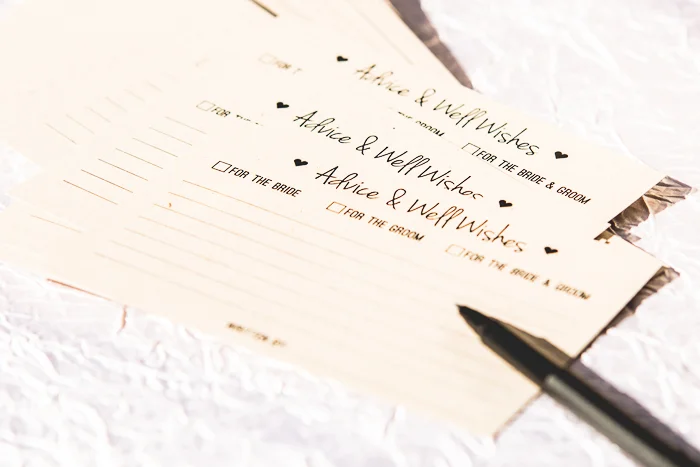 Advice & Well Wishes
FOR THE BRIDE & GROOM
Advice & Well Wishes
FOR
Advice & Well Wishes
FOR THE BRIDE
FOR THE GROOM
FOR THE BRIDE & GROOM
WRITTEN BY